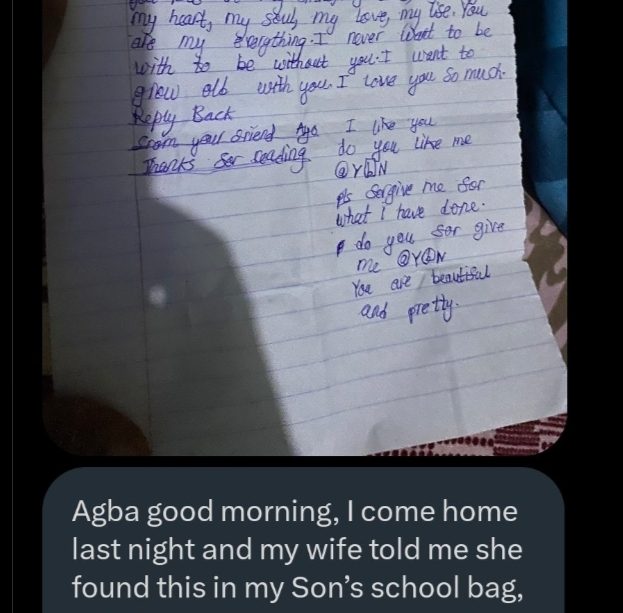 my heart, my soul, my love, my life. You
are my everything. I never want to be
with to be without you. I want to
grow old with you. I love you so much.
Reply Back
from your friend
Thanks for reading
I like you
do you like me
@Y@N
pls forgive me for
what i have done.
do you for give
me @Y@N
You are beautiful
and pretty.
Agba good morning, I come home
last night and my wife told me she
found this in my Son’s school bag,